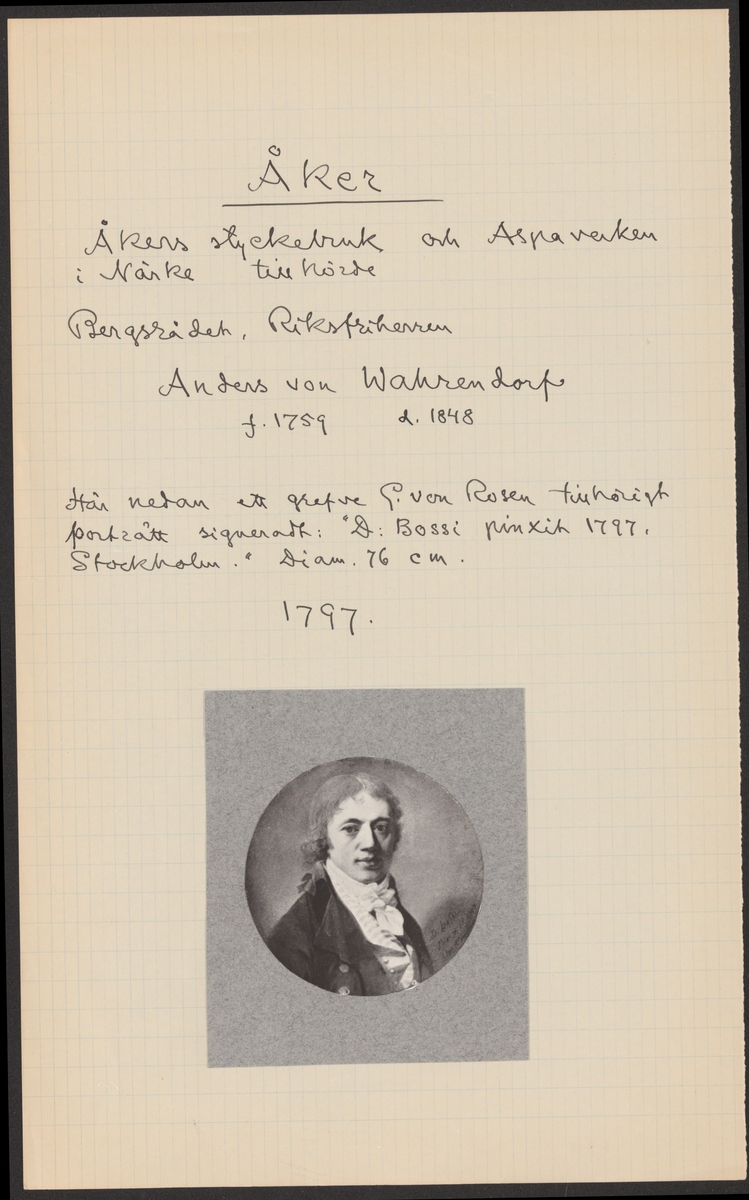 Åker
Åkers styckebruk och Aspaverken
i Närke tillhörde
Bergsrådet, Riksfriherren
Anders von Wahrendorf
f. 1759 d. 1848
Här nedan ett grefve G. von Rosen tillhörigt
porträtt signeradt: "D: Bossi pinxit 1797.
Stockholm." Diam. 76 cm.
1797.